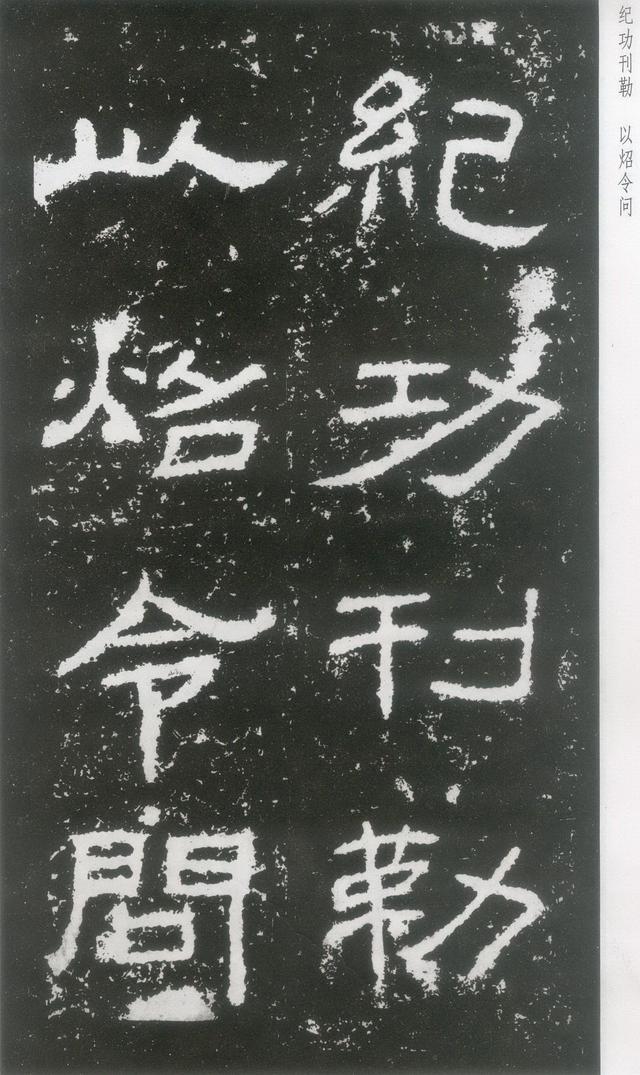 紀功刊勒
以炤令問
纪功刊勒　以炤令问